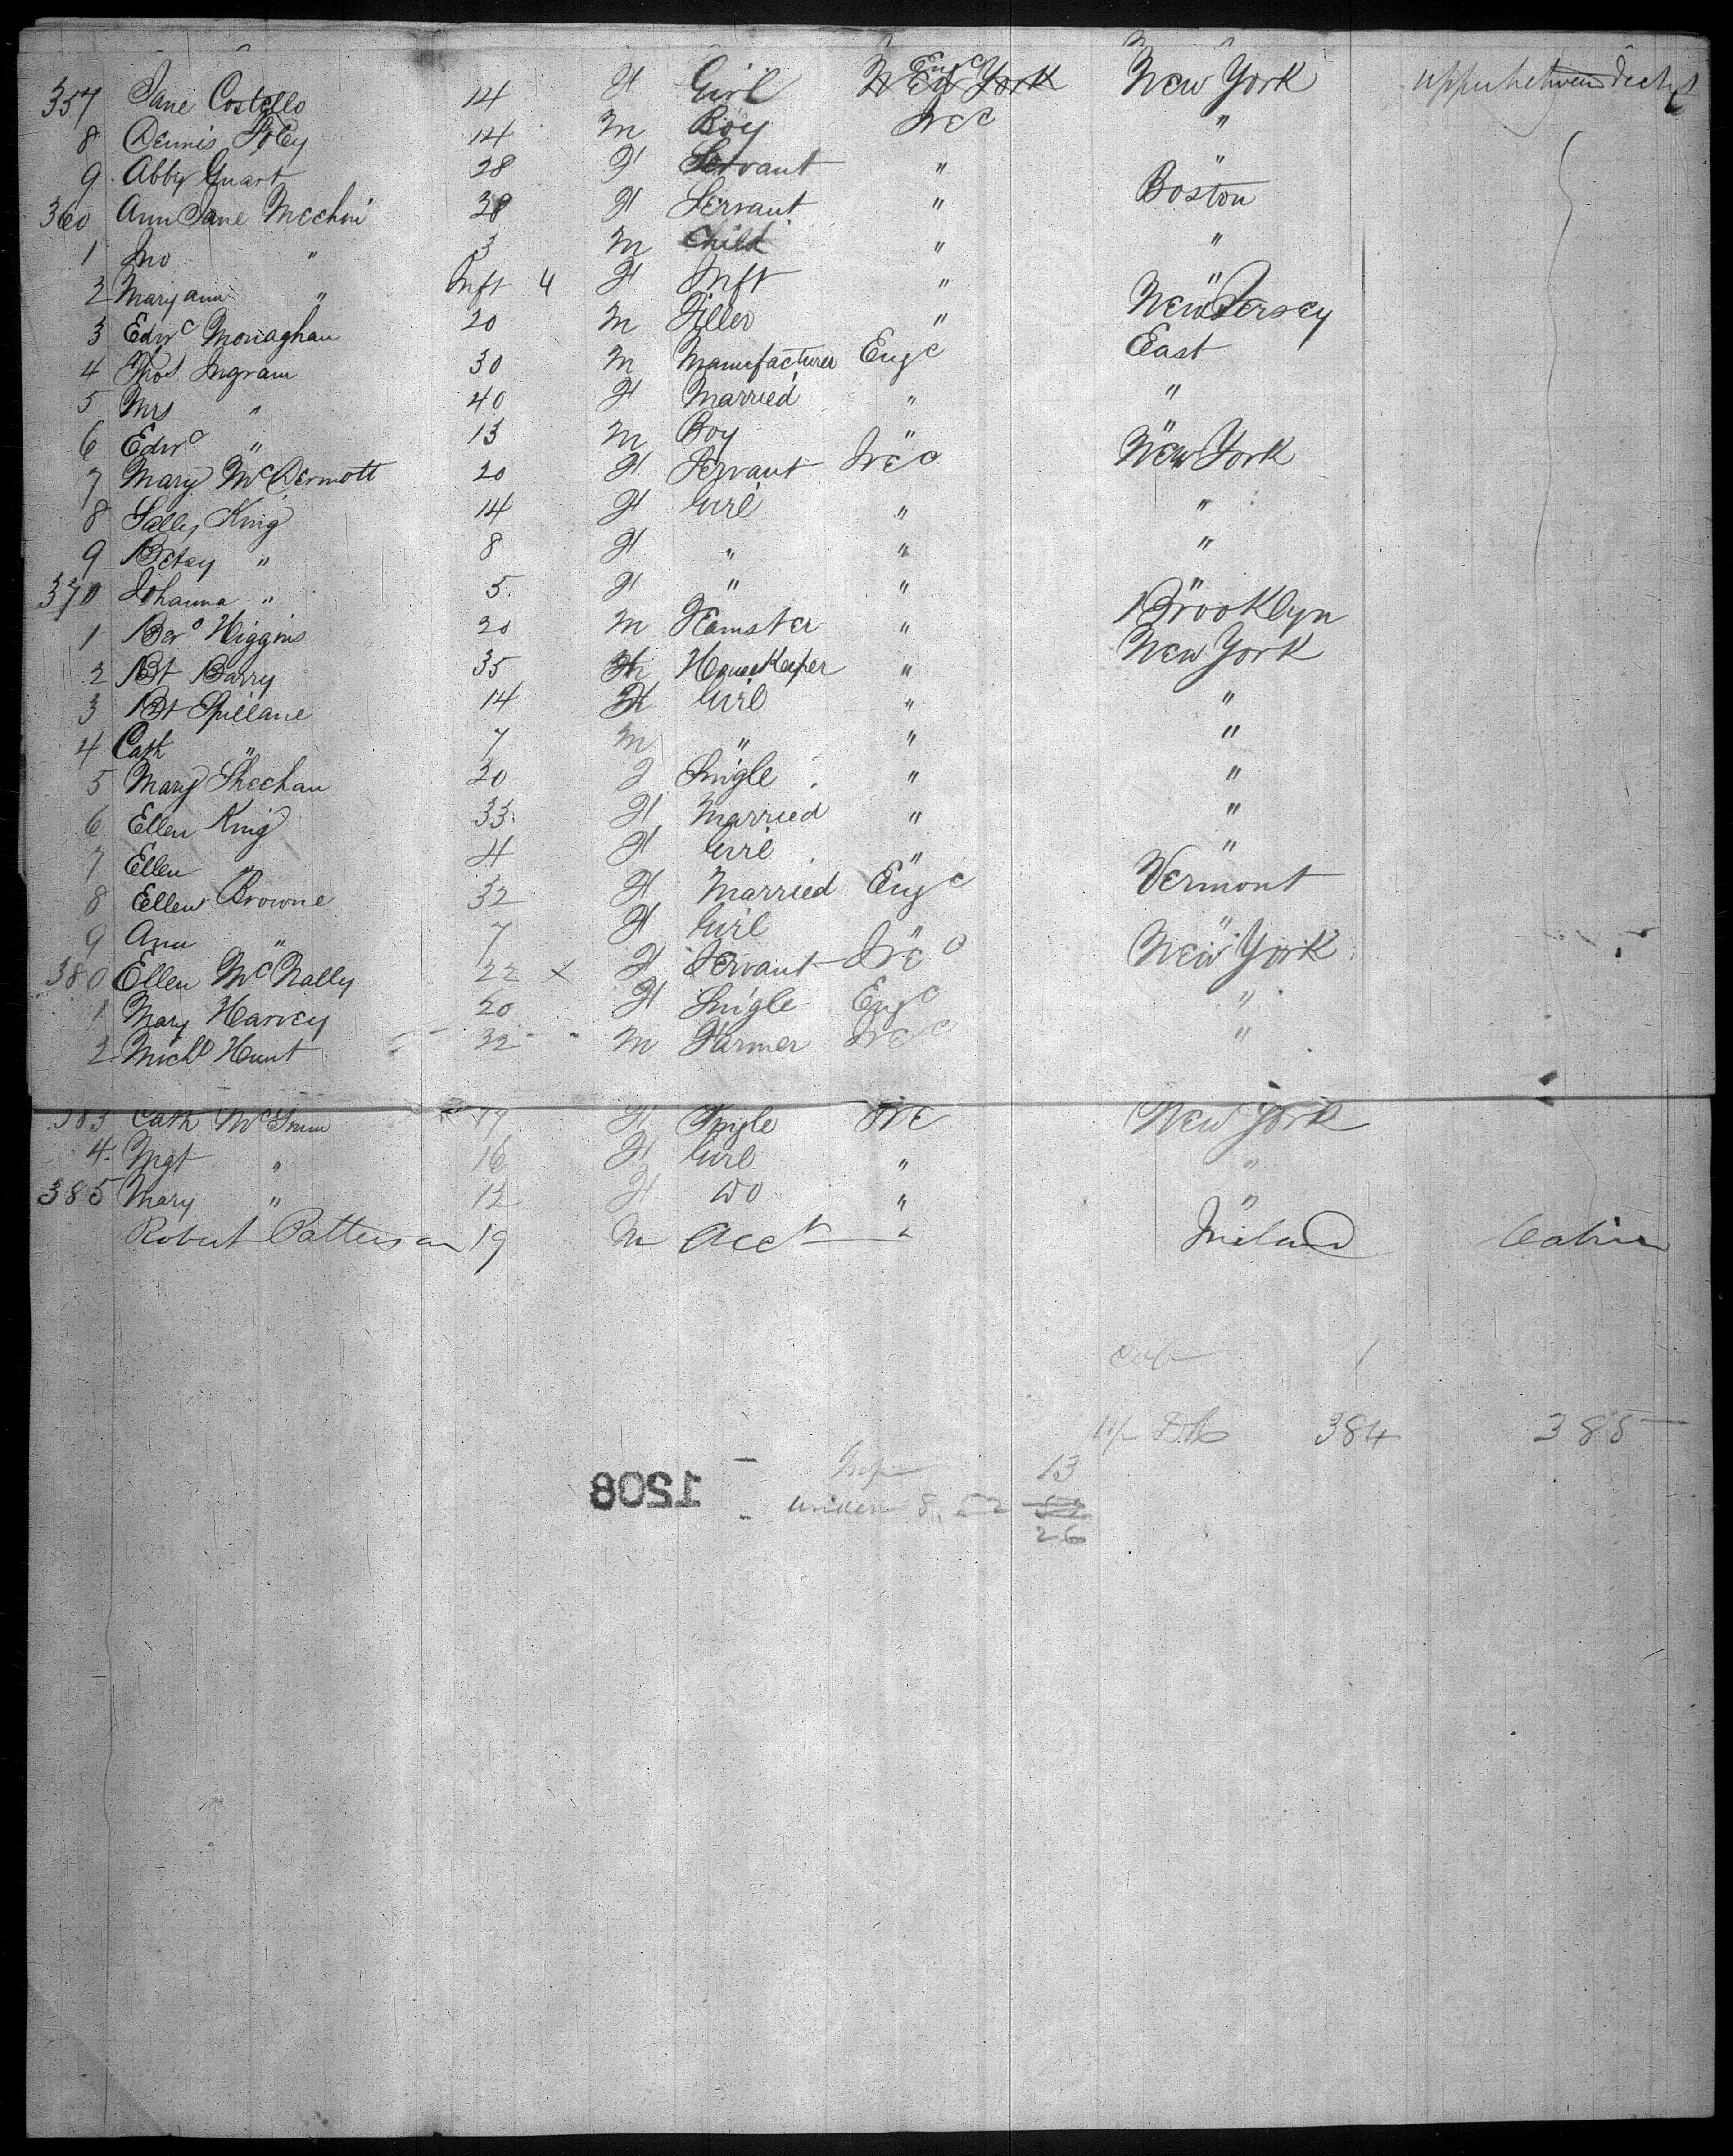 357 Jane Costello 14 F Girl Engd New York New York upper between decks
8 Dennis Foley 14 M Boy Ired "
9 Abby Quart 28 F Servant " "
360 Ann Jane Mechin 38 F Servant " Boston
1 Jno " 3 M Child " "
2 Mary ann " Inft 4 F Inft " "
3 Edwd Monaghan 20 M Filler " New Jersey
4 Thos Ingram 30 M Manufacturer Engd East
5 Mrs " 40 F Married " "
6 Edwd " 13 M Boy " "
7 Mary McDermott 20 F Servant Ired New York
8 Sally King 14 F Girl " "
9 Betsy " 8 F " " "
370 Johanna " 5 F " " "
1 Berd Higgins 20 M Teamster " Brooklyn
2 Bt Barry 35 F HouseKeeper " New York
3 Bt Spillane 14 F Girl " "
4 Cath " 7 M " " "
5 Mary Sheehan 20 F Single " "
6 Ellen King 33 F Married " "
7 Ellen " 4 F Girl " "
8 Ellen Browne 32 F Married Engd Vermont
9 Ann " 7 F Girl " "
380 Ellen McNally 22 x F Servant Ired New York
1 Mary Harvey 20 F Single Engd "
2 Michl Hunt 32 M Farmer Ired "
383 Cath 47 F Single Ire New York
4 Mgt " 16 F Girl " "
385 Mary " 12 F Do " "
Robert Patterson 19 M Acct " Cabin
Cab 1
up Dks 384 385
Inf 13
1208
under 8, 52
26